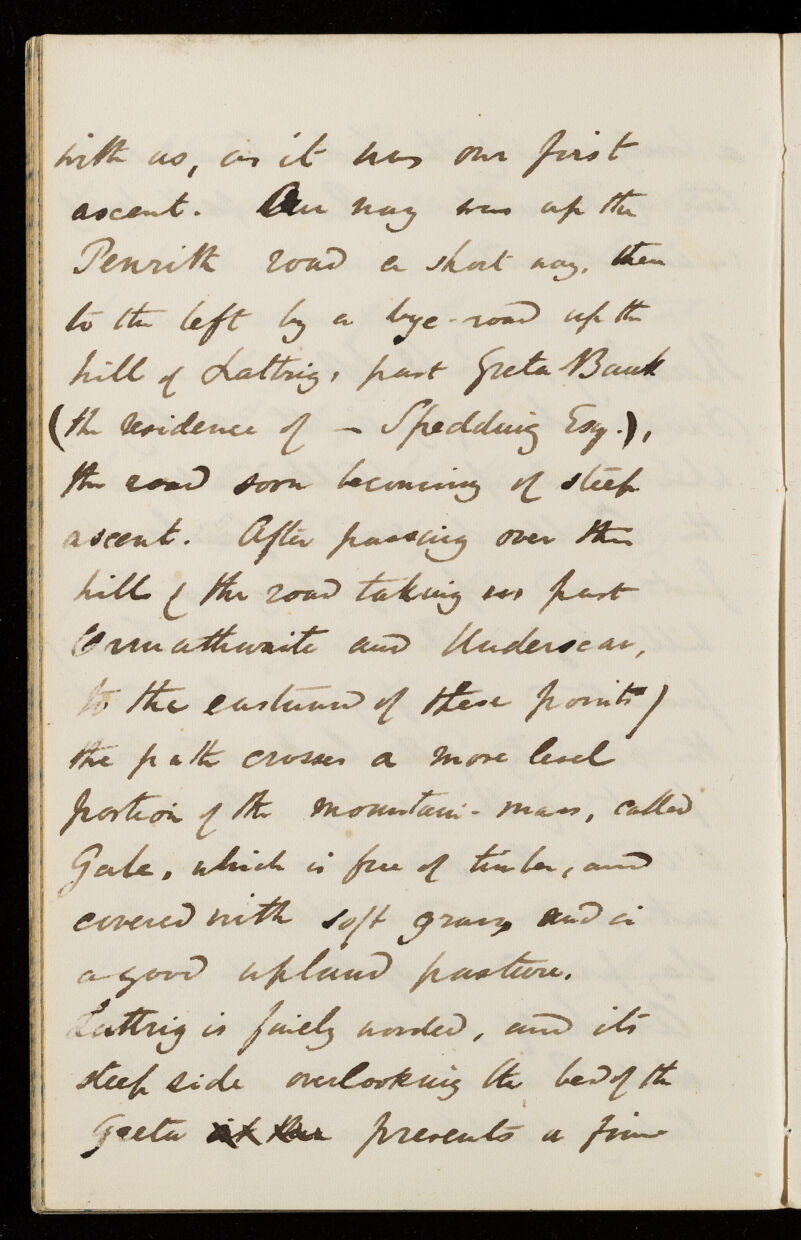 with us, as it was our first
ascent. Our way was up the
Penrith road a short way, then
to the left by a bye-road up the
hill of Lattrig, past Greta Bank
(the residence of – Spedding Esq.),
the road soon becoming of steep
ascent. After passing over this
hill ( the road taking us past
Ormathwaite and Underscar,
to the eastward of these points)
the path crosses a more level
portion of the mountain-mass, called
Gale, which is free of timber, and
covered with soft grass, and is
a good upland pasture.
Lattrig is finely wooded, and its
steep side overlooking the bed of the
Greta presents a fine